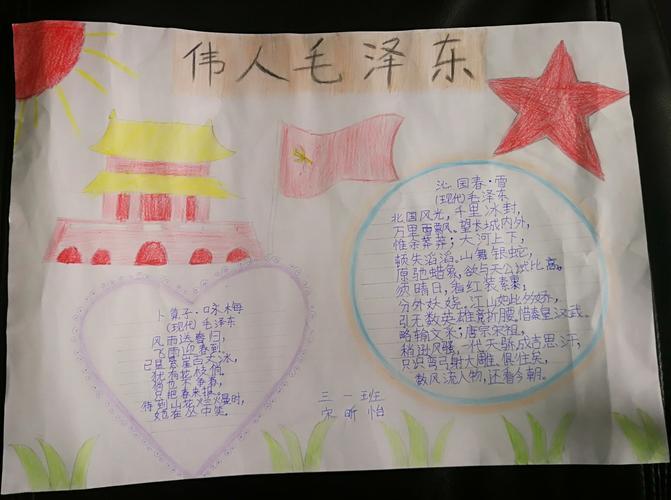 伟人毛泽东
沁园春·雪
(现代)毛泽东
北国风光,千里冰封,
万里雪飘。望长城内外,
惟余莽莽;大河上下,
顿失滔滔。山舞银蛇,
原驰蜡象,欲与天公试比高。
须晴日,看红装素裹,
分外妖娆。江山如此多娇,
引无数英雄竞折腰惜秦皇汉武。
略输文采;唐宗宋祖,
稍逊风骚。一代天骄成吉思汗,
只识弯弓射大雕。俱往矣,
数风流人物,还看今朝。
卜算子·咏梅
(现代)毛泽东
风雨送春归,
飞雪迎春到
已是悬崖百丈冰,
犹有花枝俏。
俏也不争春,
只把春来报。
待到山花烂漫时,
她在丛中笑。
三一班
宋昕怡